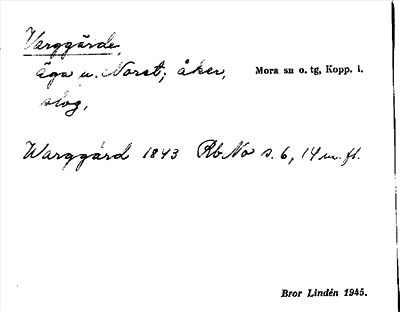 Varggärde,
äga u. Noret; åker,
slog,
Mora sn o. tg, Kopp. l.
Warggärd 1843 Rb. No s. 6, 14 m. fl.
Bror Lindén 1945.